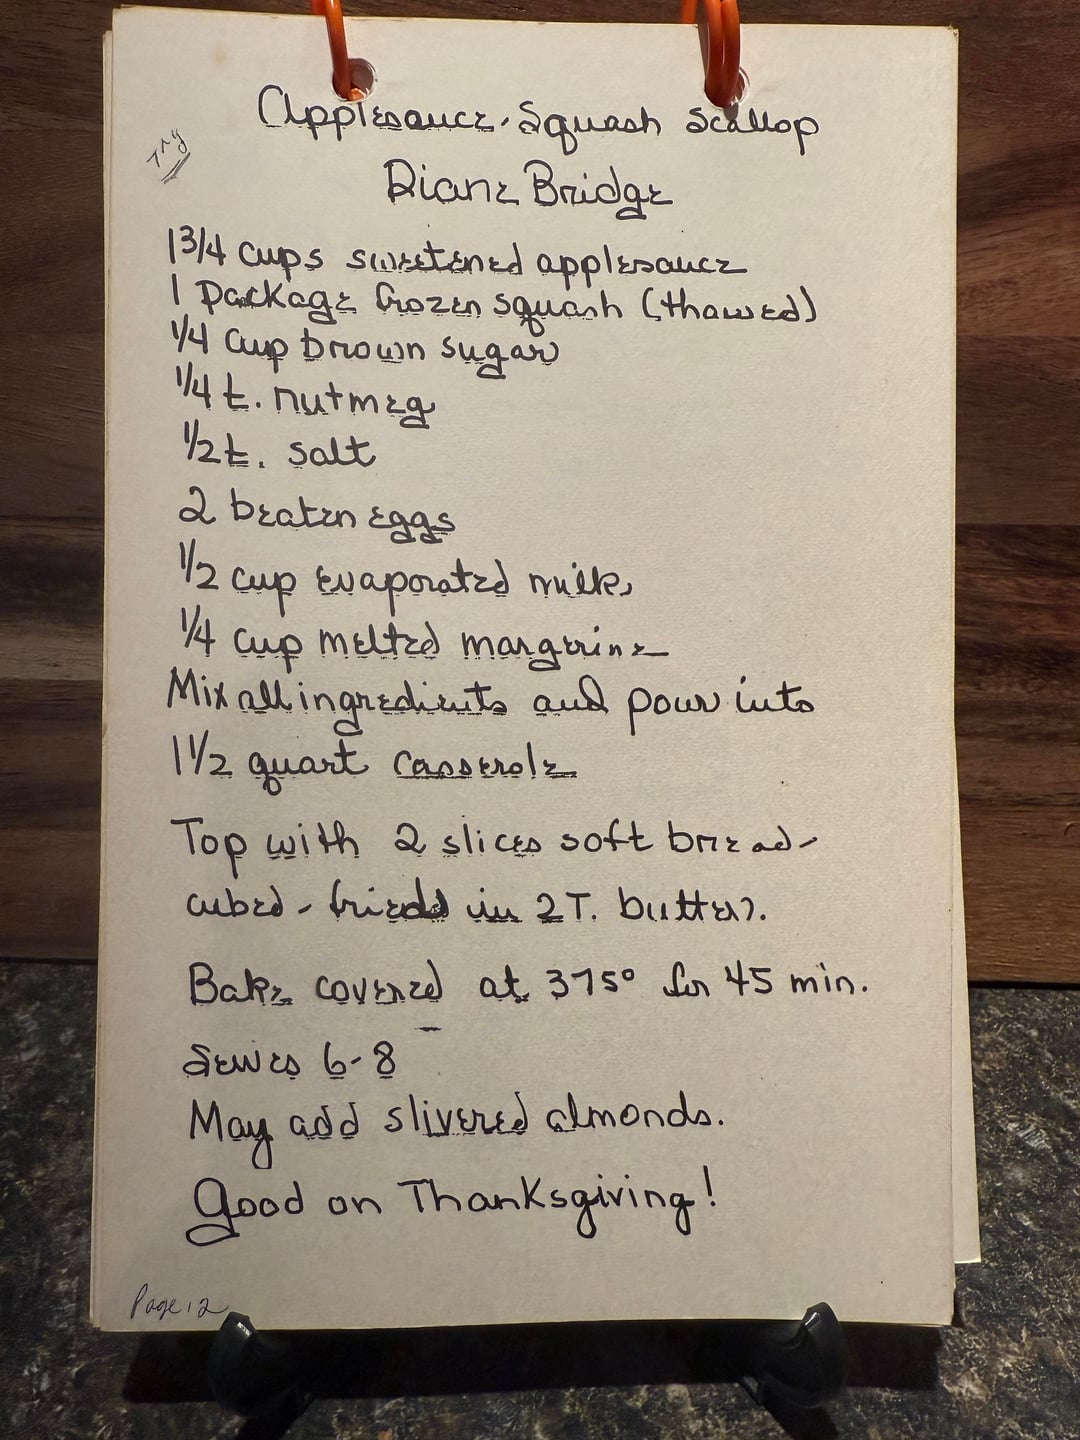 Applesauce-Squash Scallop
Try
Diane Bridge
1 3/4 cups sweetened applesauce
1 package frozen squash (thawed)
1/4 cup brown sugar
1/4 t. nutmeg
1/2 t. salt
2 beaten eggs
1/2 cup evaporated milk
1/4 cup melted margerine
Mix all ingredients and pour into
1 1/2 quart casserole
Top with 2 slices soft bread-
cubed - fried in 2 T. butter.
Bake covered at 375° for 45 min.
Serves 6-8
May add slivered almonds.
Good on Thanksgiving!
Page 12